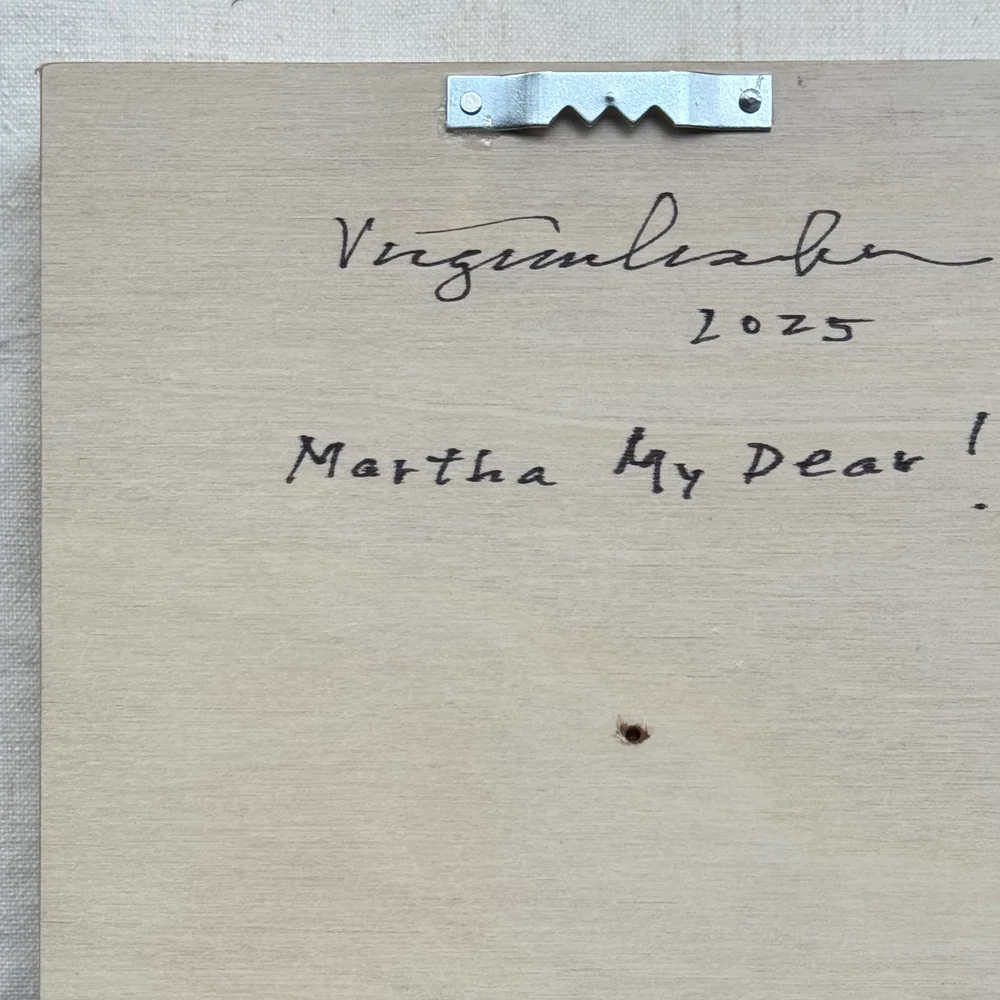 2025
Martha My Dear!